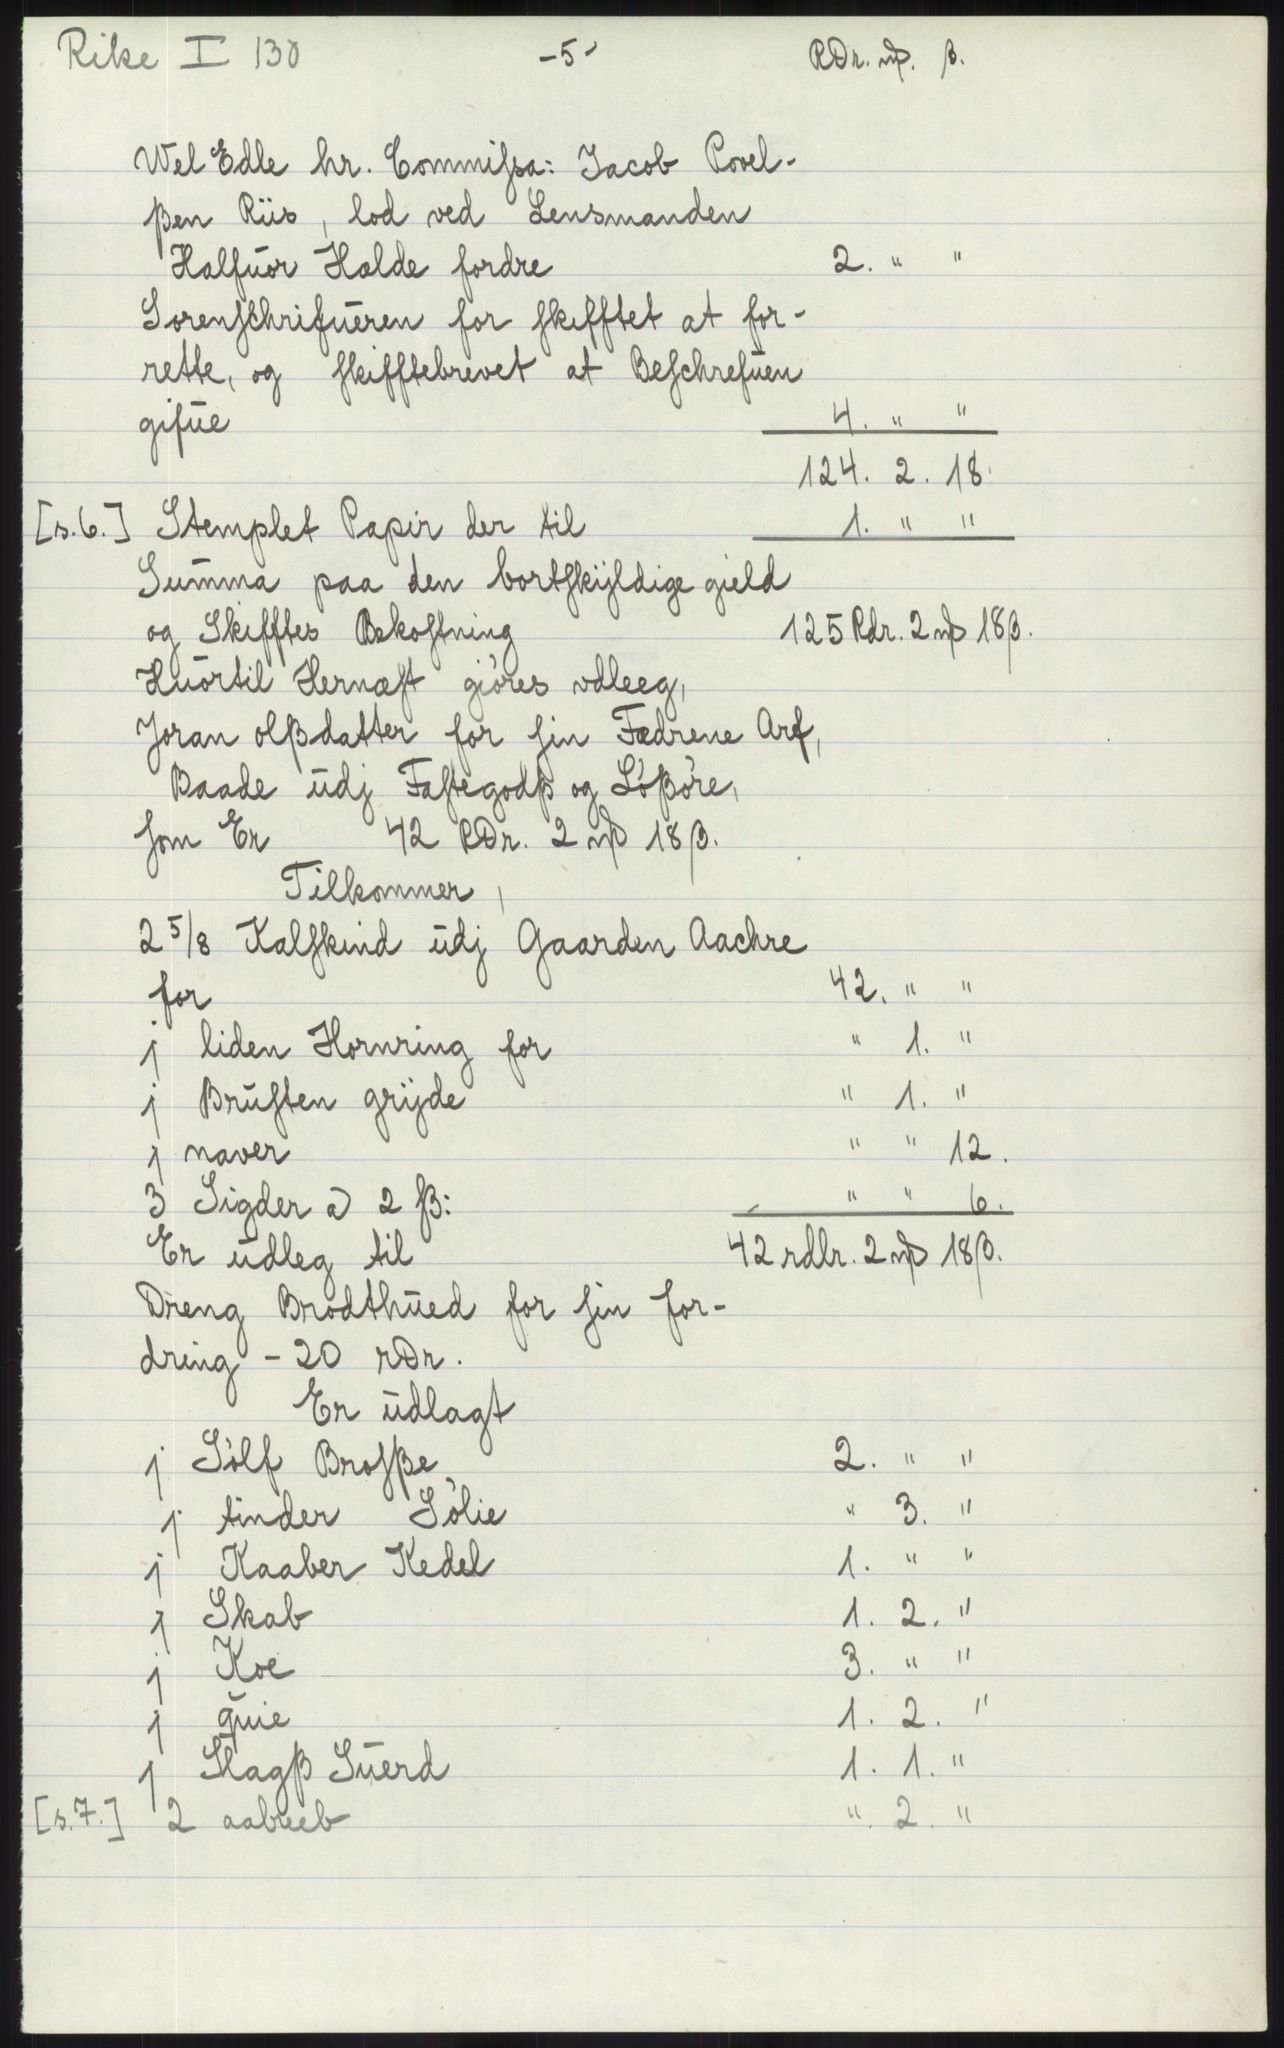 Rike I 130 -5- RDr. mþ. β.
Wel Edle hr. Commißa: Jacob Povel-
ßen Riis, lod ved Lensmanden
Halfuor Halde fordre 2. " "
Sorenschrifueren for skifftet at for-
rette, og skifftebrevet at Beschrefuen
gifue 4. " "
124. 2. 18.
[s.6.] Stemplet Papir der til 1. " "
Summa paa den bortskijldige gield
og Skifftes Bekostning 125 Rdr. 2 mþ 18β.
Huortil Hernæst giöres vdleeg,
Joran olßdatter for sin Fædrene Arf,
Baade udj Fastegodß og Lößöre,
som Er 42 RDr. 2 mþ 18β.
Tilkommer,
2 5/8 Kalfskind udj Gaarden Aachre
for 42. " "
j liden Hornring for " 1. "
j Brusten grijde " 1. "
j naver " " 12.
3 Sigder a 2 ß: " " 6.
Er udleg til 42 rdlr. 2 mþ 18β.
Dreng Brodthued for sin for-
dring - 20 rDr.
Er udlagt
j Sölf Broßße 2. " "
j tinder Sölie " 3. "
j Kaaber Kedel 1. " "
j Skab 1. 2. "
j Koe 3. " "
j quie 1. 2. "
j Slagß Suerd 1. 1. "
[s.7.] 2 aabreeb ". 2. "